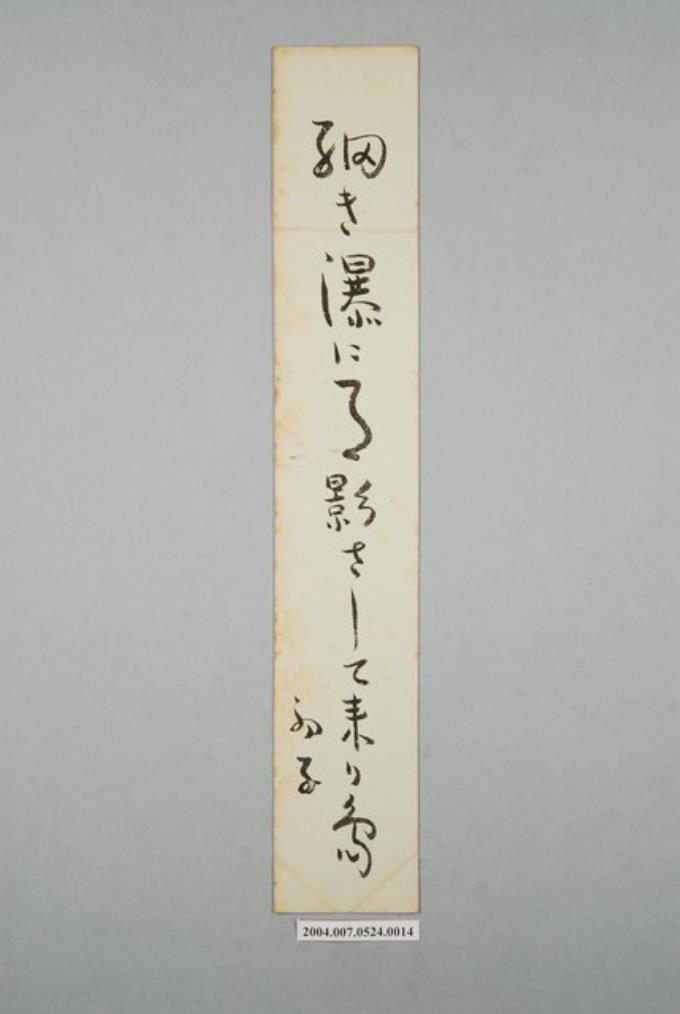 細き瀑に月影さして来り
初子
2004.007.0524.0014